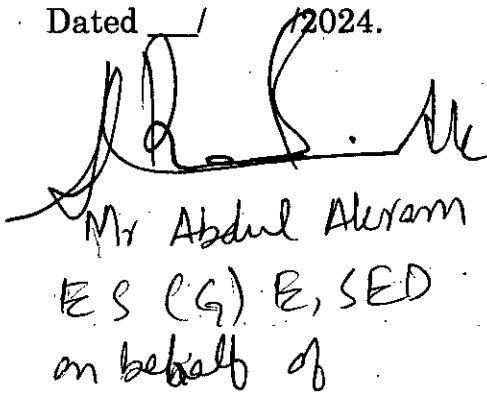 Dated ___/ /2024.
Mr Abdul Akram
ES (G) E, SED
on behalf of